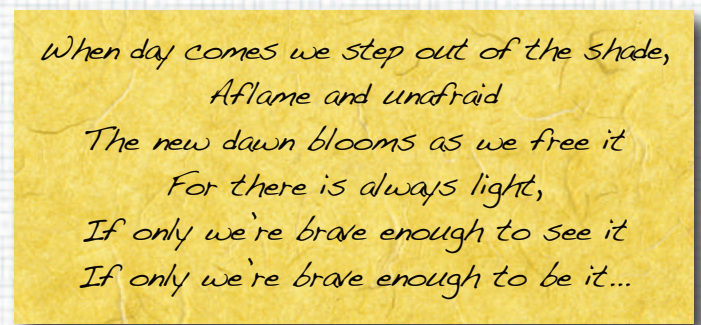 When day comes we step out of the shade,
Aflame and unafraid
The new dawn blooms as we free it
For there is always light,
If only we're brave enough to see it
If only we're brave enough to be it...